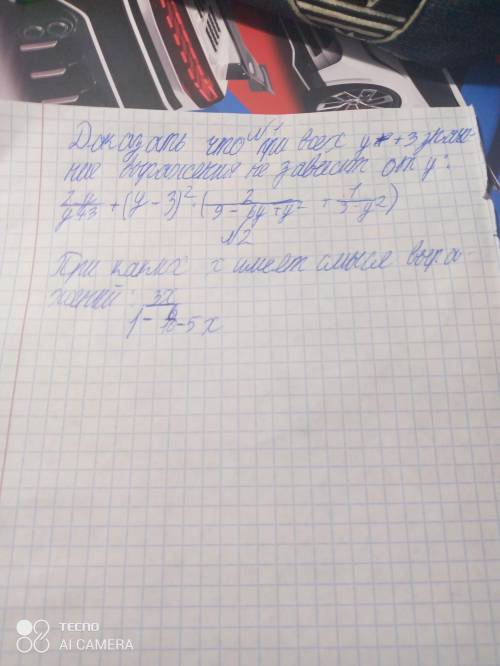 №1
Доказать что при всех y ≠ ±3 значе-
ние выражения не зависит от y:
2y/y+3 + (y - 3)² · (2/9 - 6y + y² + 1/9 - y²)
№2
При каких x имеет смысл выра-
жений: 3x
TECNO
AI CAMERA